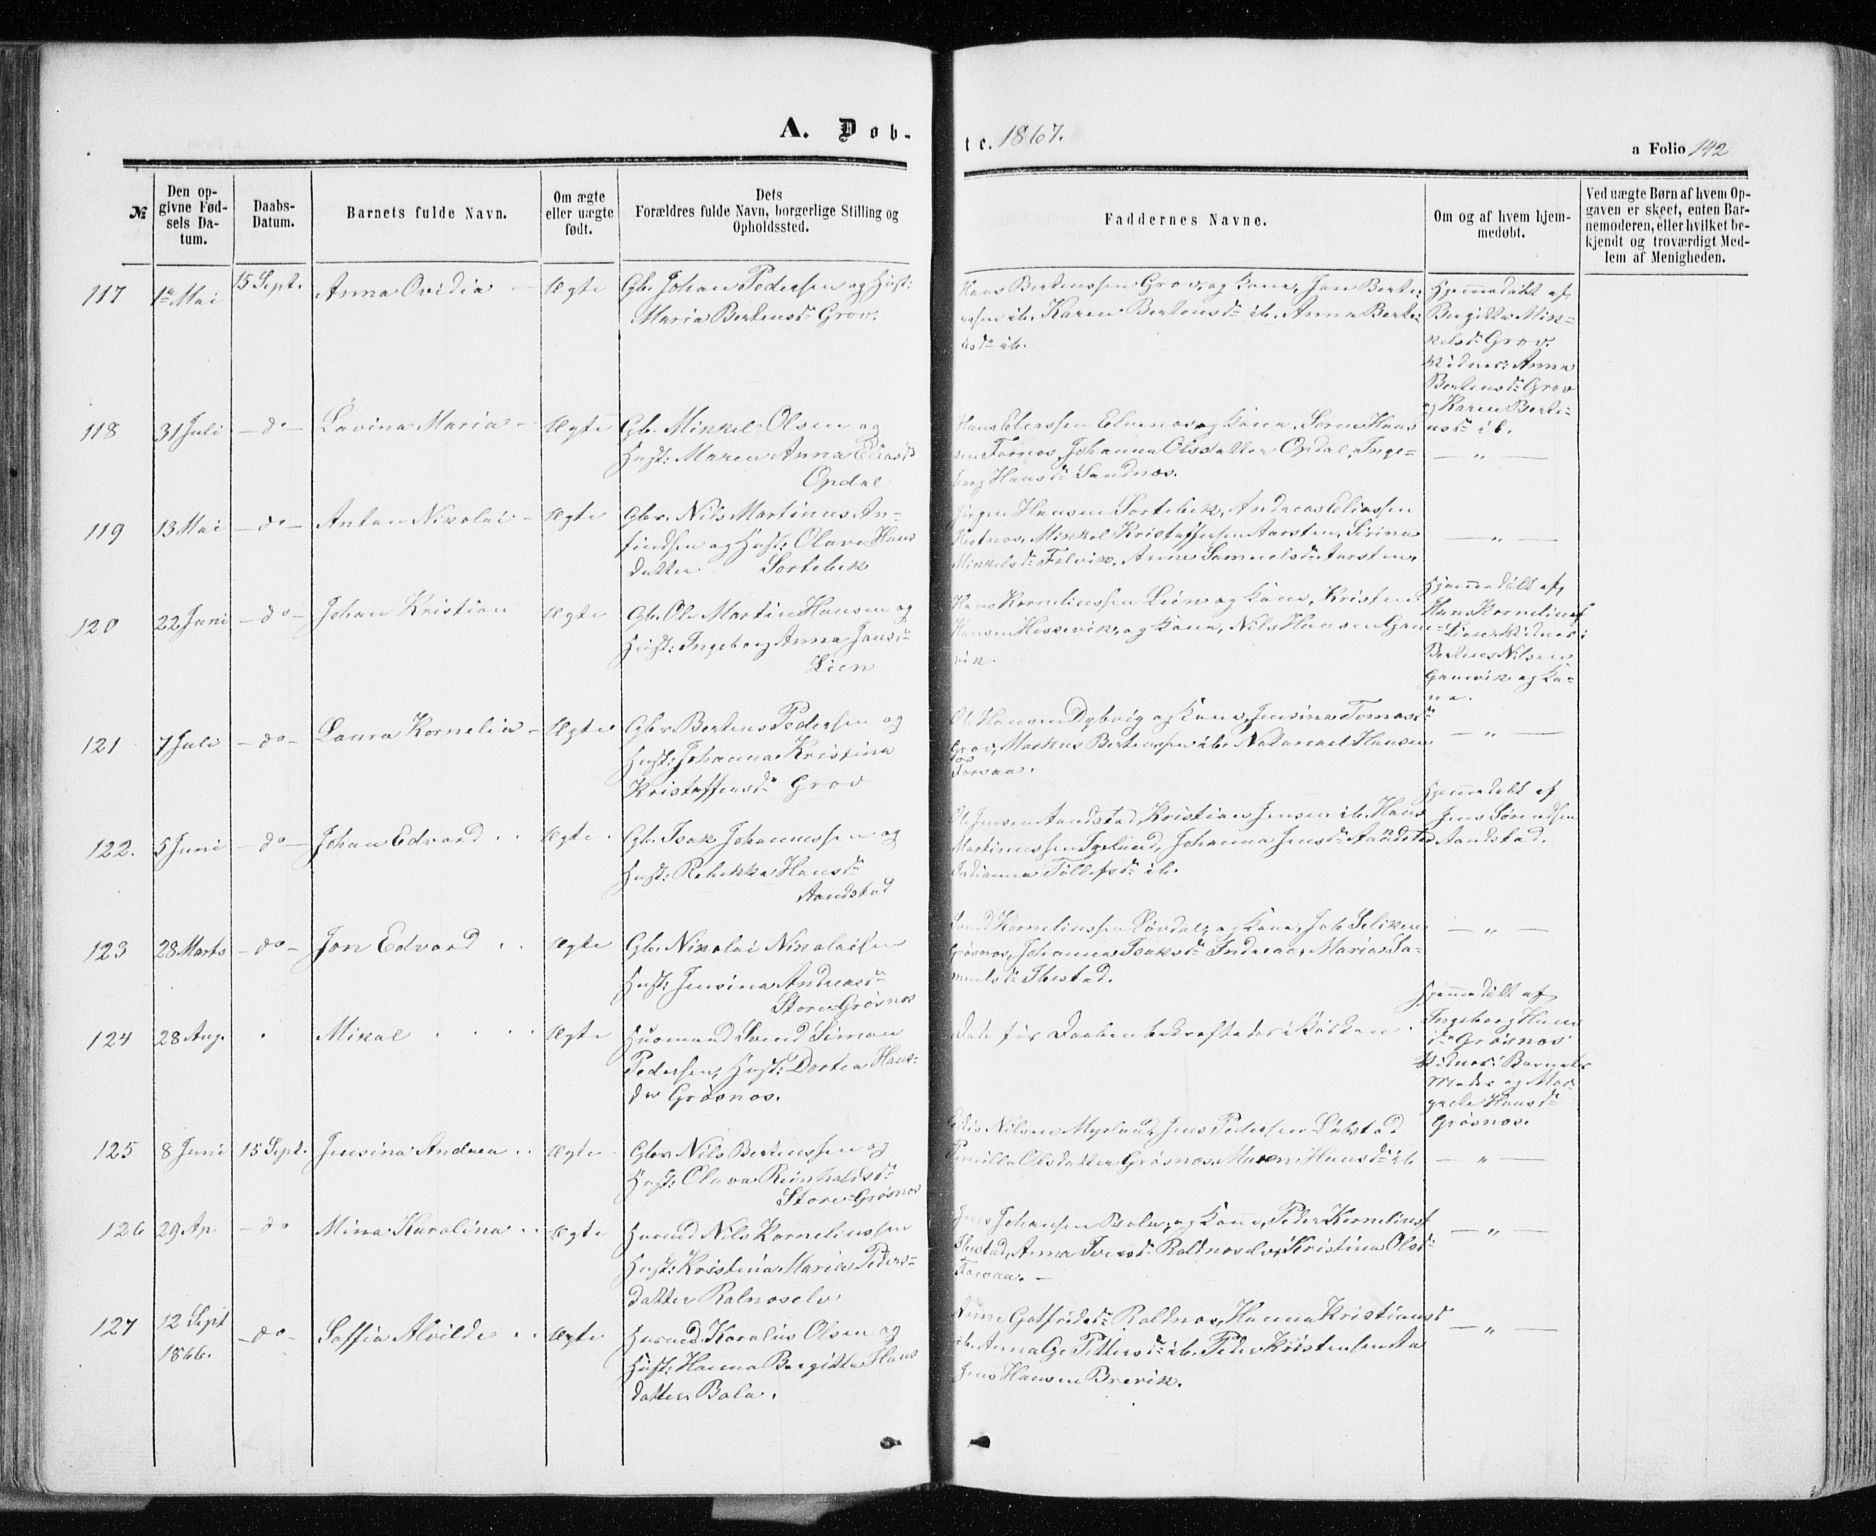 A. Dob-
te. 1867.
a Folio 142
№
Den op-
givne Fød-
sels Da-
tum.
Daabs-
Datum.
Barnets fulde Navn.
Om ægte
eller uægte
født.
Dets
Forældres fulde Navn, borgerlige Stilling og
Opholdssted.
Faddernes Navne.
Om og af hvem hjem-
medøbt.
Ved uægte Børn af hvem Op-
gaven er skeet, enten Bar-
nemoderen, eller hvilket be-
kjendt og troværdigt Med-
lem af Menigheden.
117 1ste Mai 15 Sept. Anna Ovidia – Ægte
Gbr. Johan Pedersen og Hust:
Maria Bertensdr Grov.
Hans Bertenssen Grov, og Kone, Jon Berte-
nssen ib. Karen Bertensdr ib. Anna Berte-
nsdr ib.
Hjemmedøbt af
Bergitte Min-
kelsdr Grov.
Vidner: Anna
Bertensdr Grov
og Karen Berte-
nsdr ib.
118 31 Juli – do – Lavina Maria – Ægte
Gbr. Minkel Olsen og
Hust: Maren Anna Eliasdr
Opdal
Hans Eliassen Elvenes og Kone, Søren Hans
sen Fornes, Johanna Olsdatter Opdal, Inge-
borg Hansdr Sandnes.
– " –
119 13 Mai – do – Anton Nikolai – Ægte
Gbr. Nils Martinus An-
findsen og Hust: Olava Hans
datter Sortebek
Jørgen Hansen Sortebek, Andreas Eliassen
Hestnes, Minkel Kristoffersen Aarsten, Sirina
Minkelsdr Folvik, Anne Samuelsdr Aarsten.
– " –
120 22 Juni – do – Johan Kristian Ægte
Gbr. Ole Martin Hansen og
Hust: Ingeborg Anna Jonsdr
Lien
Hans Kornelinssen Lien og Kone, Kristen
Hansen Hessevik, og Kone, Nils Hansen Gane-
vik.
Hjemmedøbt af
Hans Kornelins
Lien. Vidner:
Bertines Nilsen
Ganevik og Ko-
ne.
121 7 Juli – do – Laura Kornelia – Ægte
Gbr. Bertens Pedersen og
Hust: Johanna Kristina
Kristoffersdr Grov
Ole Hansen Dybvig og Kone, Jensina Tomasdr
Grov, Markus Bertenssen ib. Natanael Hansen
Forvaa.
– " –
122. 5 Juni – do – Johan Edvard . . Ægte .
Gbr. Isak Johannessen og
Hust: Rebekka Hansdr
Aandstad
Ole Jensen Aandstad, Kristian Jensen ib. Hans
Martinussen Igelund, Johanna Jensdr Aandstad
Indianna Tollefsdr ib.
Hjemmedøbt af
Jens Sørendsen
Aandstad.
123 28 Marts – do – Jon Edvard . . Ægte
Gbr. Nikolai Nikolaisen
Hust: Jensina Andreasdr
Store Grøsnes
Kornelinssen Løvdal, og Kone, Job Seliken
Grøsnes, Johanna Isaksdr Indreaa, Maria Sa-
muelsdr Ibestad.
– " –
124 28 Aug. . Mikal . . . . Ægte
Huusmand Svend Simon
Pedersen, Hust: Dortea Hans-
dr Grøsnes.
Døde før Daaben bekræftedes i Kirken.
Hjemmedøbt af
Ingeborg Hans
dr Grøsnes
Vidner: Barnets
Moder og Mar-
grete Hansdr
Grøsnes.
125 8 Juni 15 Sept. Jensina Andrea . . Ægte
Gbr. Nils Berinssen og
Hust: Olava Reinholdsdr
Store Grøsnes
Edis Nilsen Myrlund, Jens Pedersen Løkstad
Pernilla Olsdatter Grøsnes, Maren Hansdr ib.
– " –
126 29 Ap. – do Mina Karolina . . Ægte
Husmd Nils Kornelinssen
Hust: Kristina Maria Peders-
datter Rolnoselv
Jens Johansen Bolla, og Kone, Peder Kornelinss
Ibestad, Anna Iversdr Roldnoselv, Kristina Olsdr
Forvaa. –
– " –
127 12 Sept
1866. – do – Soffia Alvilde . . Ægte
Husmd Karolius Olsen og
Hust: Hanna Bergitta Hans
datter Bola.
Anne Gotfredsdr Roldnes, Hanna Kristiansdr
ib. Anna Pettersdr ib. Peder Kristensen
Jens Hansen Brevik.
– " –